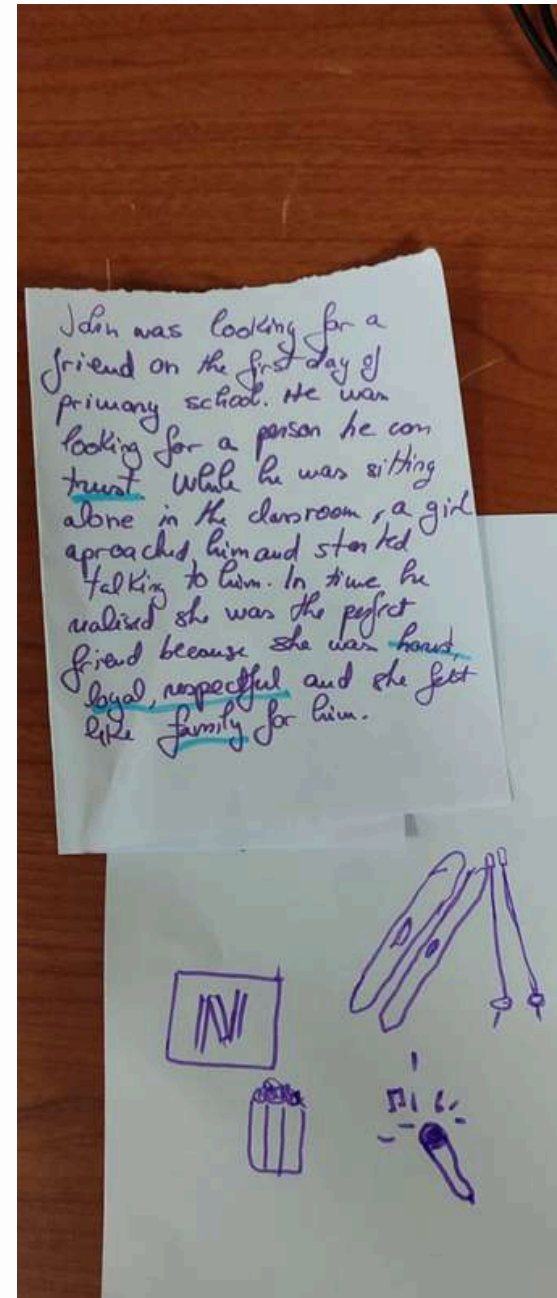 John was looking for a
friend on the first day of
primary school. He was
looking for a person he can
trust. While he was sitting
alone in the classroom, a girl
aproached him and started
talking to him. In time he
realised she was the perfect
friend because she was honest,
loyal, respectful and she felt
like family for him.
N